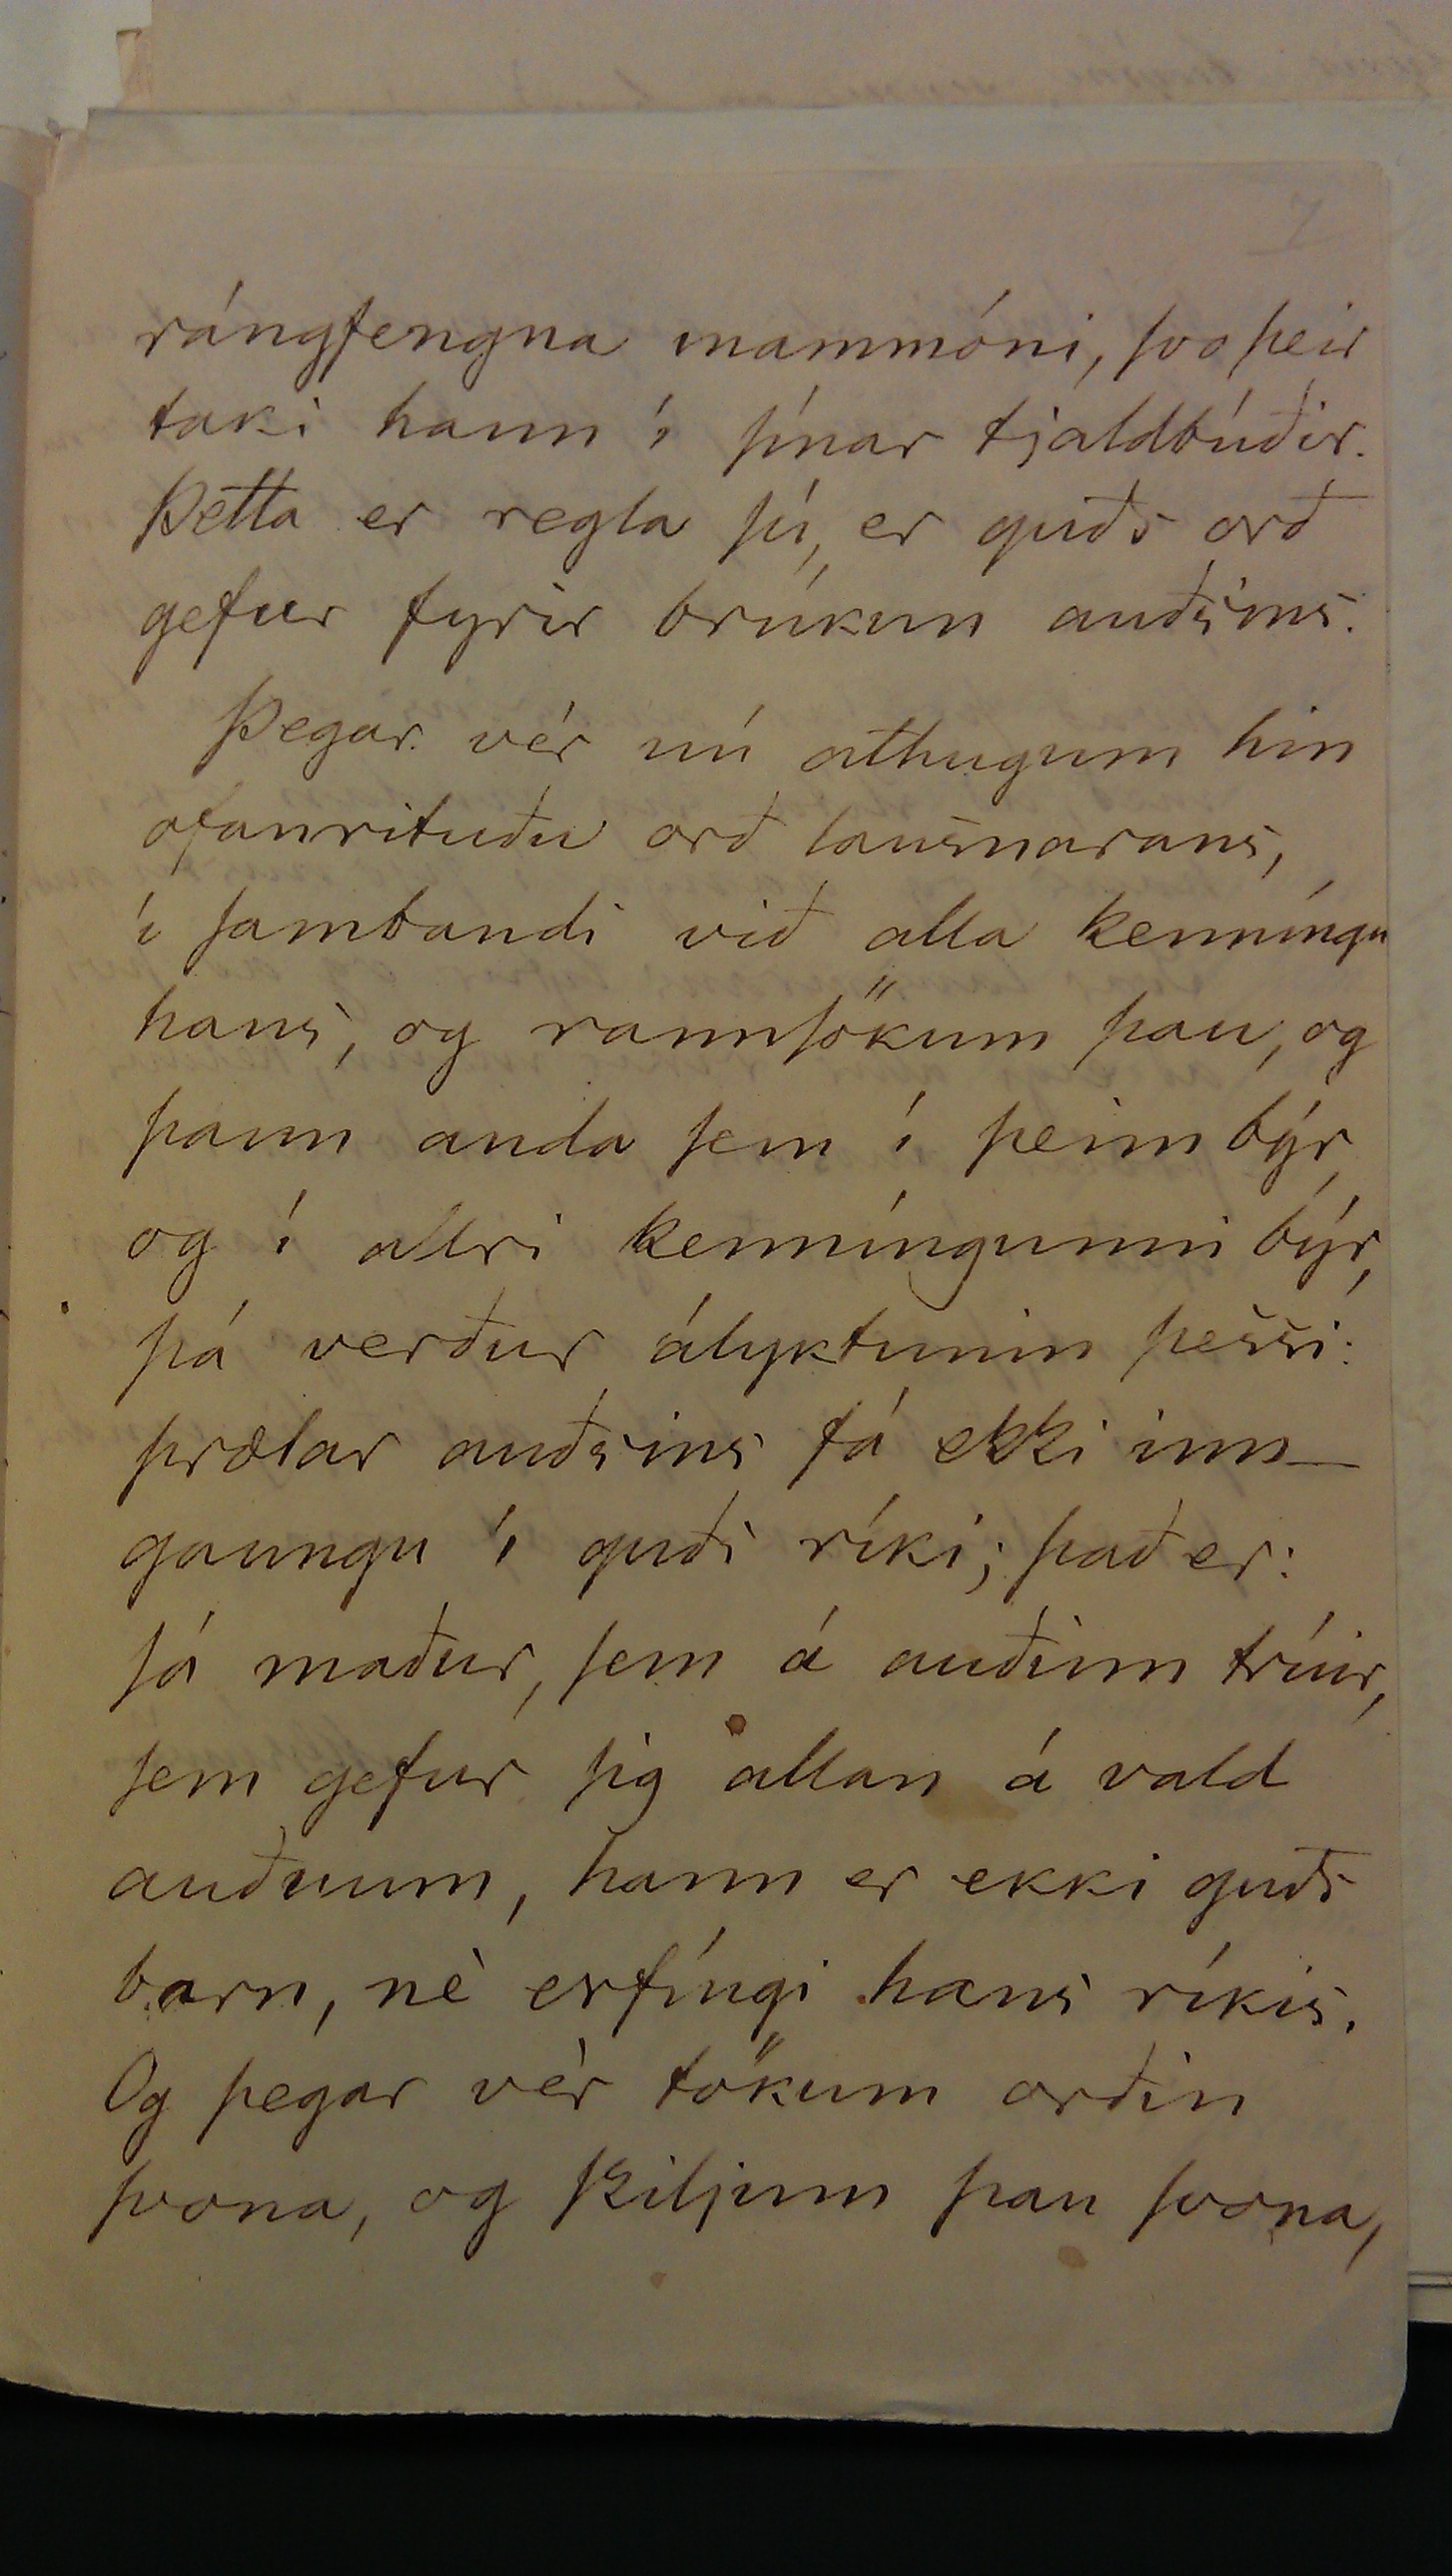 rángfengna mammóni, svo þeir
taki hann í sínar tjaldbúðir.
Þetta er regla sú, er guðs orð
gefur fyrir brúkun auðsins.
Þegar vér nú athugum hin
ofanrituðu orð lausnarans,
í sambandi við alla kenníngu
hans, og rannsökum þau, og
þann anda sem í þeim býr,
og í allri kenníngunni býr,
þá verður ályktunin þessi:
þrælar auðsins fá ekki inn-
gaungu í guðs ríki; það er:
sá maður, sem á auðinn trúir,
sem gefur sig allan á vald
auðnum, hann er ekki guðs
barn, nè erfíngi hans ríkis.
Og þegar vèr tökum orðin
svona, og skiljum þau svona,